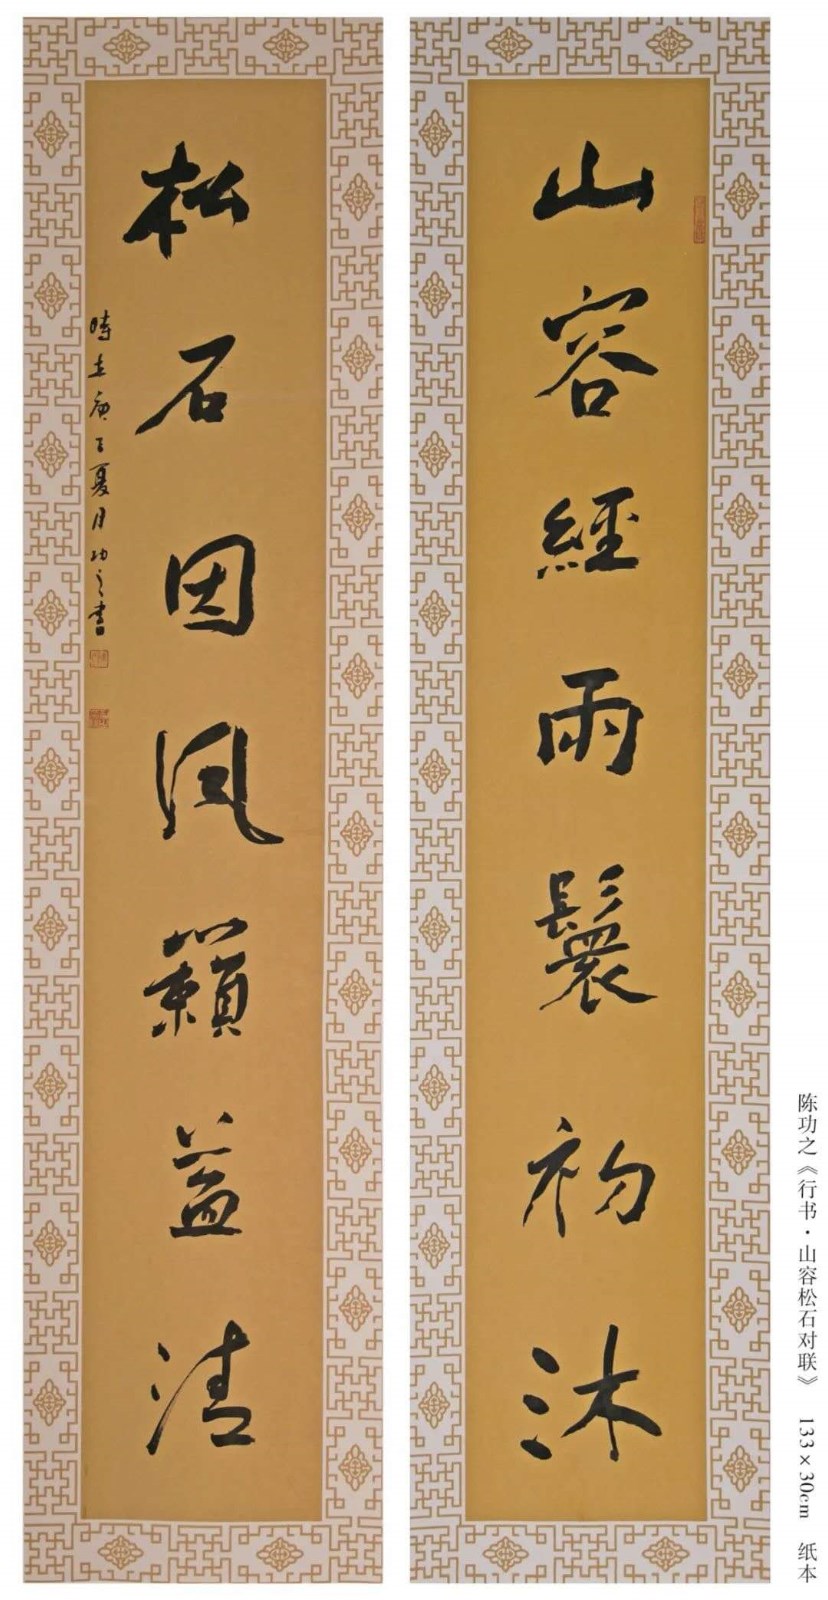 山容經雨鬟初沐
松石因風籟益清
時在庚子夏月功之書
陈功之《行书·山容松石对联》 133×30cm 纸本